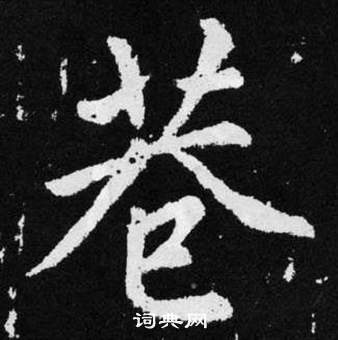 巷
词典网